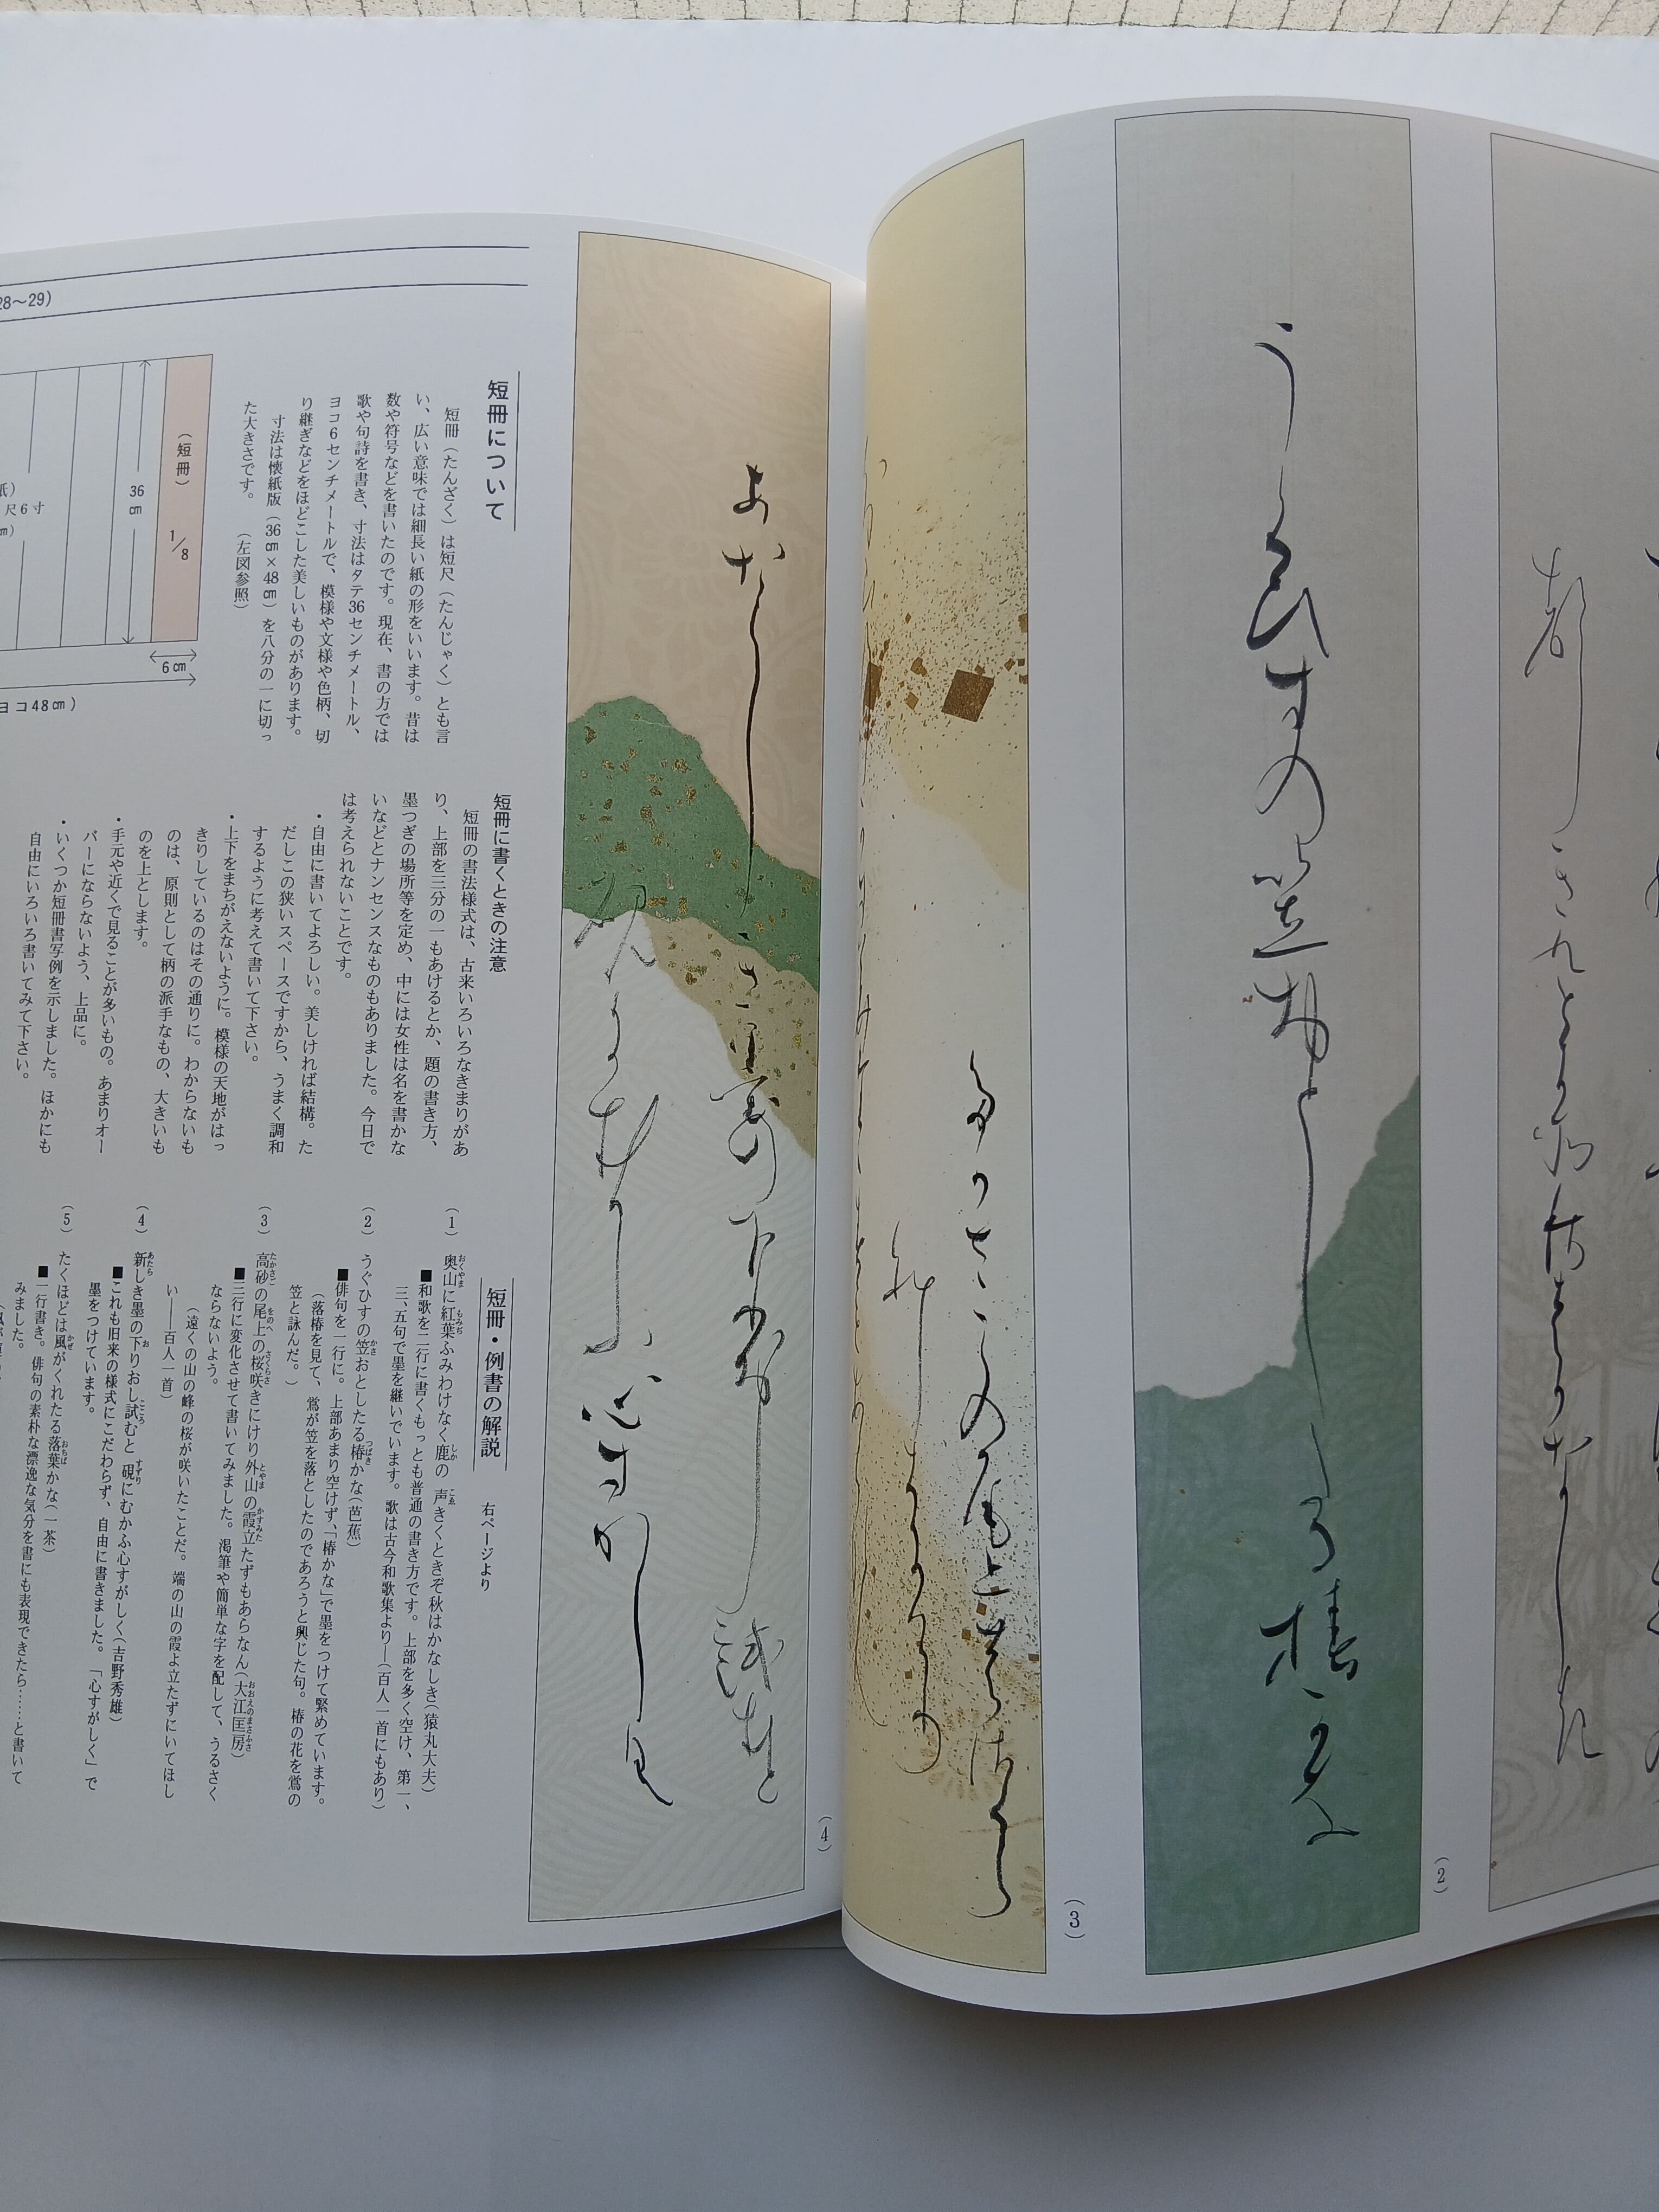 うくひすの笠おとしたる椿かな
(2)
(3)
(4)
短冊について
短冊（たんざく）は短尺（たんじゃく）とも言
い、広い意味では細長い紙の形をいいます。昔は
数や符号などを書いたのです。現在、書の方では
歌や句詩を書き、寸法はタテ36センチメートル、
ヨコ6センチメートルで、模様や文様や色柄、切
り継ぎなどをほどこした美しいものがあります。
寸法は懐紙版（36㎝×48㎝）を八分の一に切っ
た大きさです。　（左図参照）
（短冊）　1/8
36㎝
6㎝
尺6寸
ヨコ48㎝）
28～29)
短冊に書くときの注意
短冊の書法様式は、古来いろいろなきまりがあ
り、上部を三分の一もあけるとか、題の書き方、
墨つぎの場所等を定め、中には女性は名を書かな
いなどとナンセンスなものもありました。今日で
は考えられないことです。
・自由に書いてよろしい。美しければ結構。た
だしこの狭いスペースですから、うまく調和
するように考えて書いて下さい。
・上下をまちがえないように。模様の天地がはっ
きりしているのはその通りに。わからないも
のは、原則として柄の派手なもの、大きいも
のを上とします。
・手元や近くで見ることが多いもの。あまりオー
バーにならないよう、上品に。
・いくつか短冊書写例を示しました。ほかにも
自由にいろいろ書いてみて下さい。
短冊・例書の解説　右ページより
(1)　奥山に紅葉ふみわけなく鹿の　声きくときぞ秋はかなしき（猿丸大夫）
■和歌を二行に書くもっとも普通の書き方です。上部を多く空け、第一、
三、五句で墨を継いでいます。歌は古今和歌集より――（百人一首にもあり）
(2)　うぐひすの笠おとしたる椿かな（芭蕉）
■俳句を一行に。上部あまり空けず、「椿かな」で墨をつけて緊めています。
（落椿を見て、鶯が笠を落としたのであろうと興じた句。椿の花を鶯の
笠と詠んだ。）
(3)　高砂の尾上の桜咲きにけり外山の霞立たずもあらなん（大江匡房）
■三行に変化させて書いてみました。渇筆や簡単な字を配して、うるさく
ならないよう。
（遠くの山の峰の桜が咲いたことだ。端の山の霞よ立たずにいてほし
い――百人一首）
(4)　新しき墨の下りおし試むと　硯にむかふ心すがしく（吉野秀雄）
■これも旧来の様式にこだわらず、自由に書きました。「心すがしく」で
墨をつけています。
(5)　たくほどは風がくれたる落葉かな（一茶）
■一行書き。俳句の素朴な漂逸な気分を書にも表現できたら……と書いて
みました。